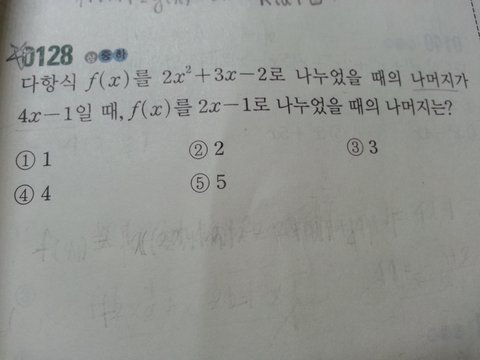 0128 상 중 하
다항식 f(x)를 2x²+3x-2로 나누었을 때의 나머지가
4x-1일 때, f(x)를 2x-1로 나누었을 때의 나머지는?
① 1 ② 2 ③ 3
④ 4 ⑤ 5